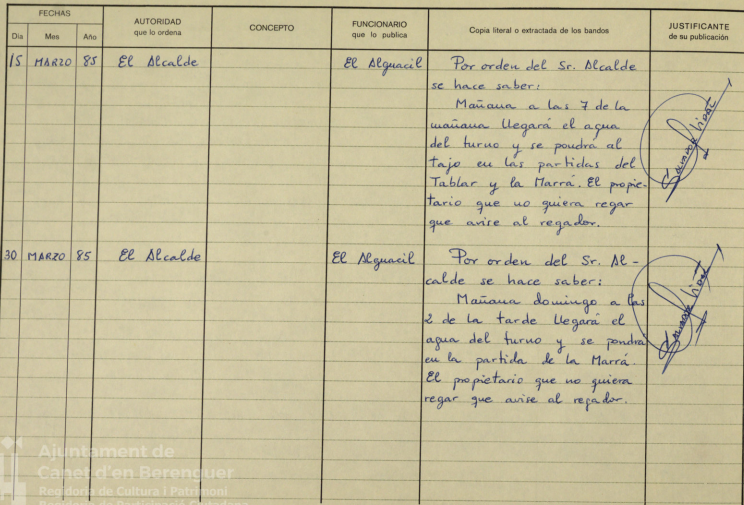 FECHAS
AUTORIDAD
que lo ordena
CONCEPTO
FUNCIONARIO
que lo publica
Copia literal o extractada de los bandos
JUSTIFICANTE
de su publicación
Día Mes Año
15 MARZO 85 El Alcalde El Alguacil Por orden del Sr. Alcalde
se hace saber:
Mañana a las 7 de la
mañana llegará el agua
del turno y se pondrá al
tajo en las partidas del
Tablar y la Marrá. El propie-
tario que no quiera regar
que avise al regador.
30 MARZO 85 El Alcalde El Alguacil Por orden del Sr. Al-
calde se hace saber:
Mañana domingo a las
2 de la tarde llegará el
agua del turno y se pondrá
en la partida de la Marrá.
El propietario que no quiera
regar que avise al regador.
Ajuntament de
Canet d'en Berenguer
Regidoria de Cultura i Patrimoni
Regidoria de Participació Ciutadana